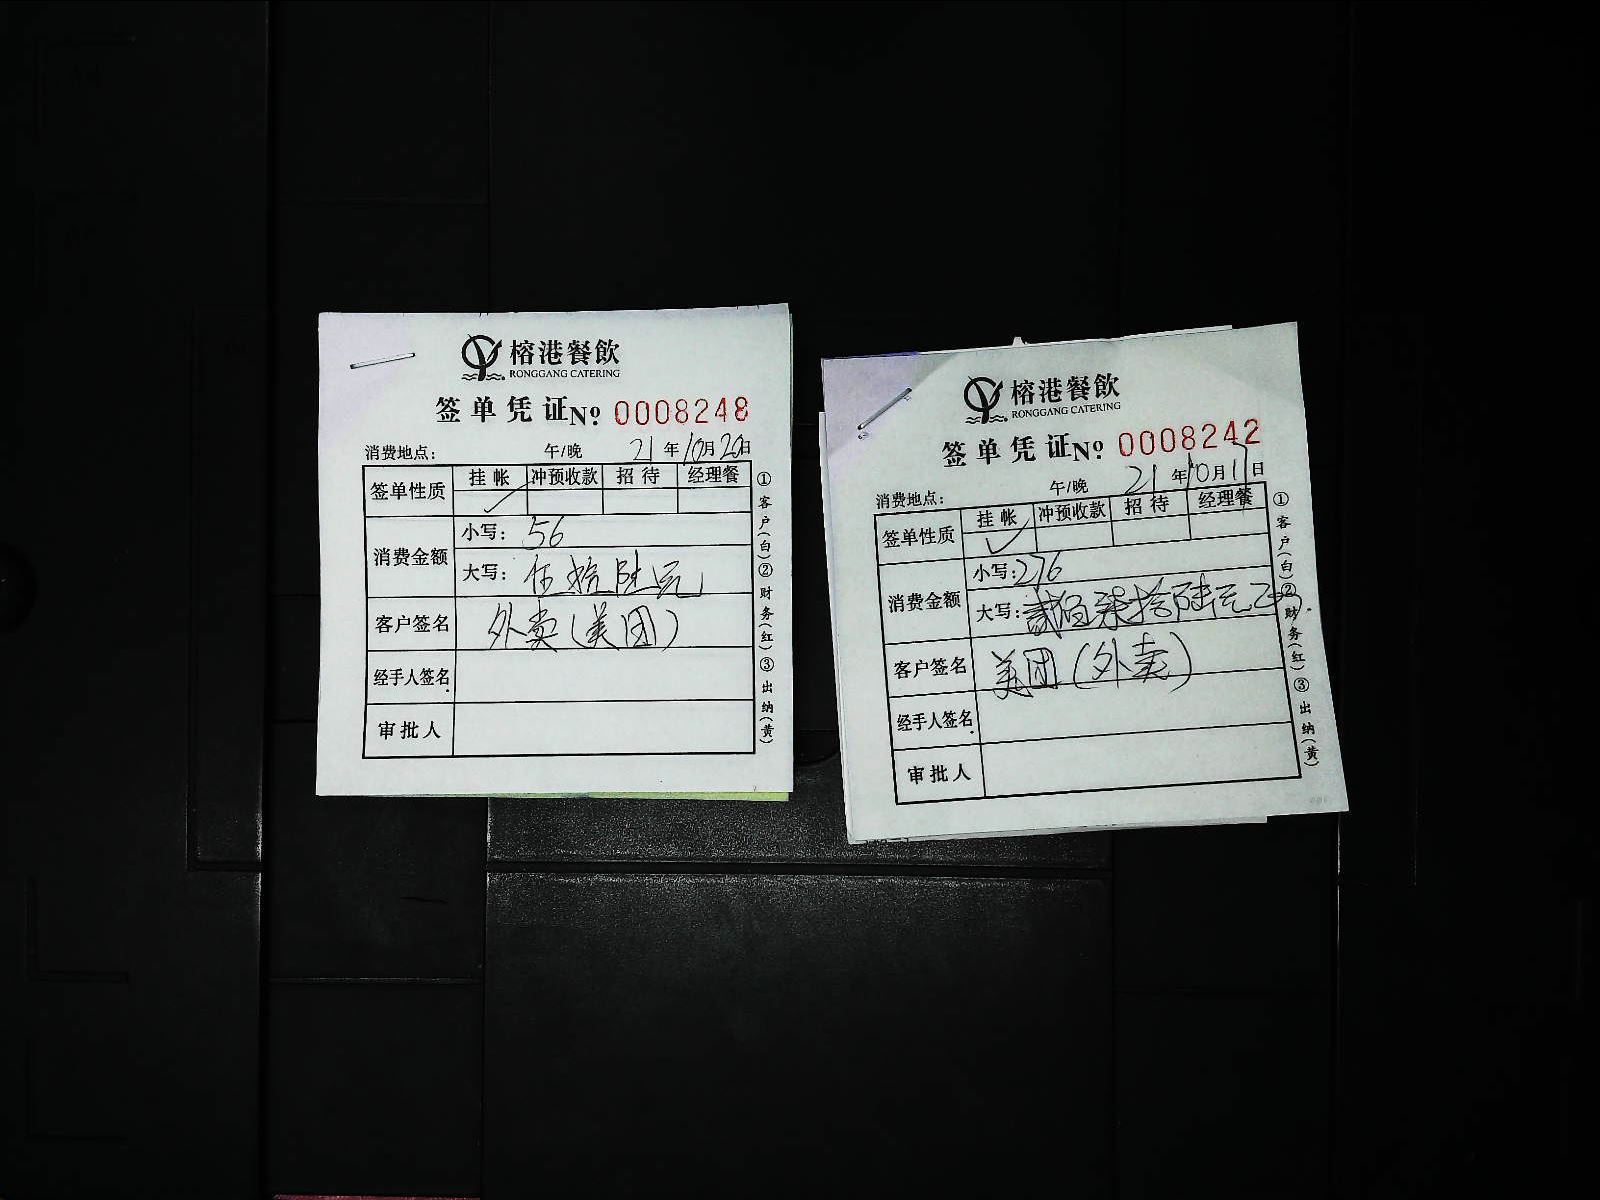 榕港餐飲
RONGGANG CATERING
签单凭证№ 0008248
消费地点: 午/晚 21年10月20日
签单性质 挂帐 冲预收款 招待 经理餐
✓
消费金额 小写: 56
大写: 伍拾陆元
客户签名 外卖(美团)
经手人签名
审批人
①客户(白)②财务(红)③出纳(黄)
榕港餐飲
RONGGANG CATERING
签单凭证№ 0008242
消费地点: 午/晚 21年10月17日
签单性质 挂帐 冲预收款 招待 经理餐
✓
消费金额 小写: 276
大写: 贰佰柒拾陆元正
客户签名 美团(外卖)
经手人签名
审批人
①客户(白)②财务(红)③出纳(黄)